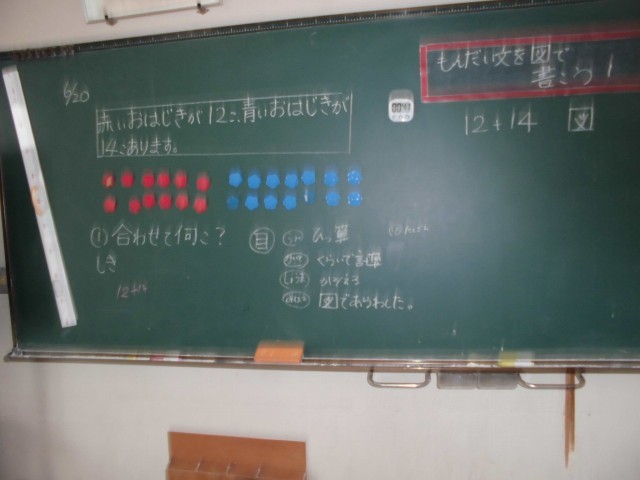 6/20
もんだい文を図で
書こう!
赤いおはじきが12こ、青いおはじきが
14こあります。
12+14 図
① 合わせて何こ?
しき
12+14
目
ひっ算
くらいで計算
かぞえる
図であらわした。